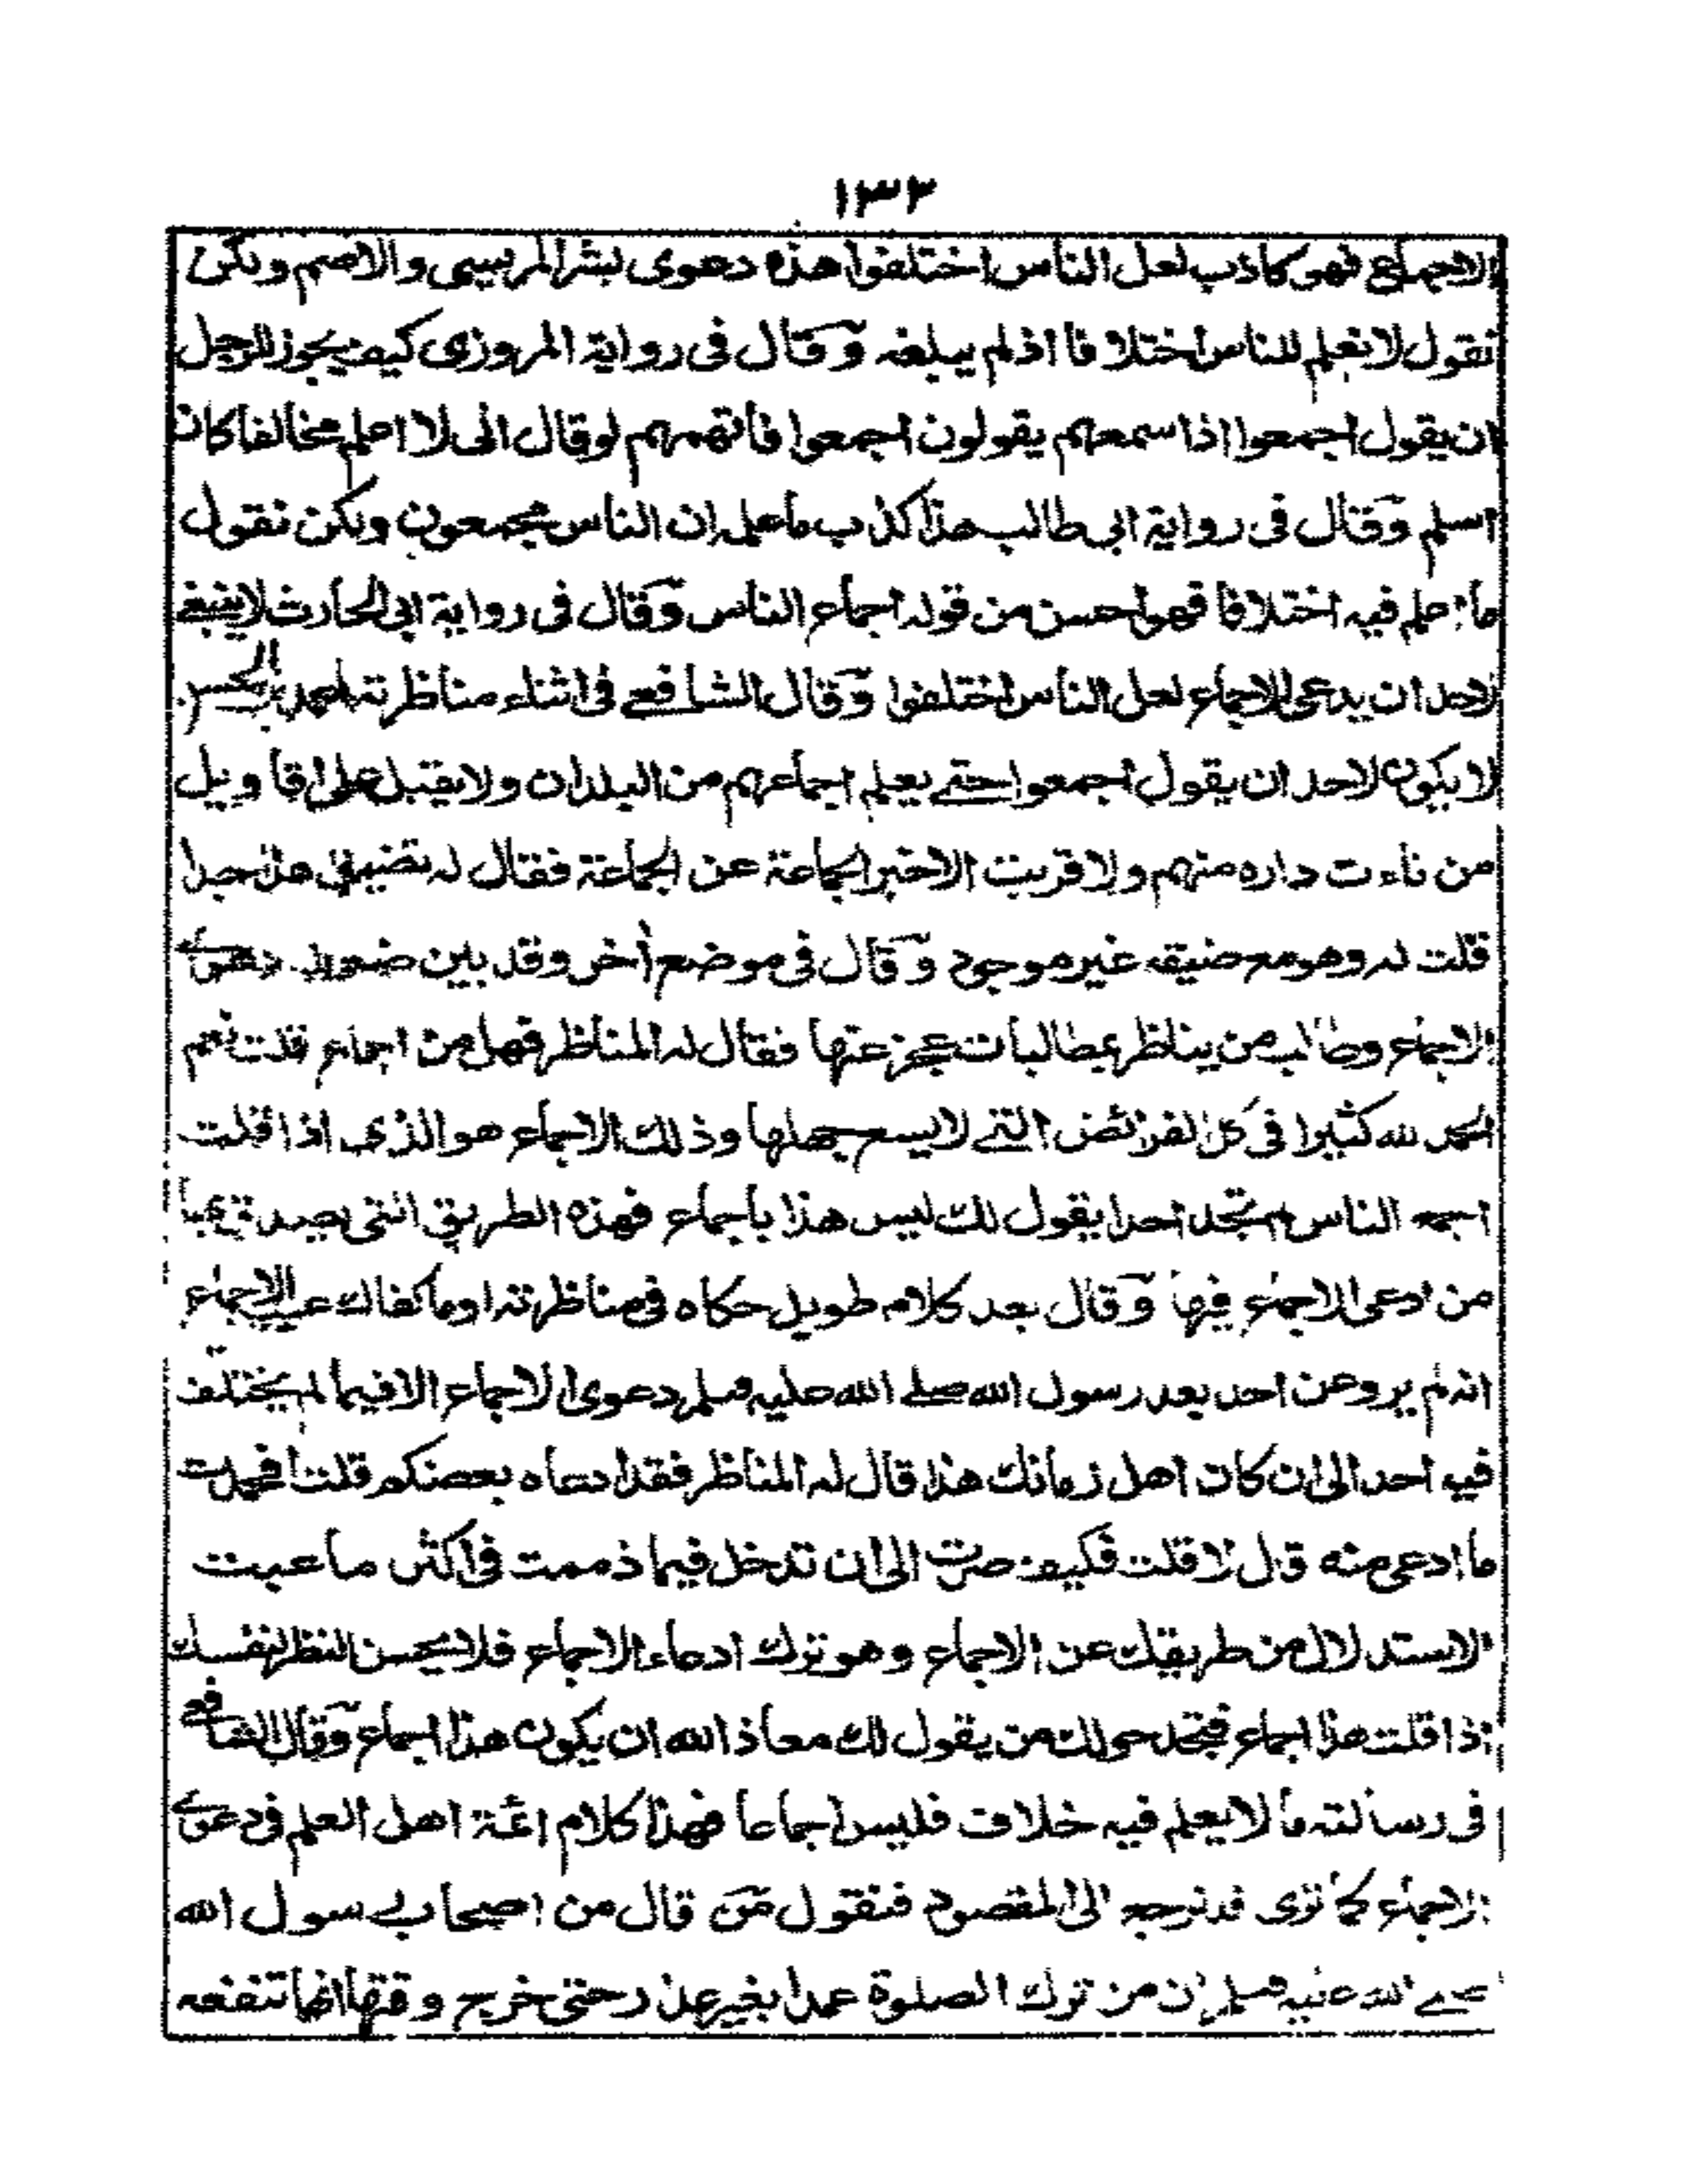 ١٣٣
الاجماع فهو كاذب لعل الناس اختلفوا هذه دعوى بشر المريسى والاصم ولكن
نقول لا نعلم للناس اختلافا اذ لم يبلغه وقال فى رواية المروزى كيف يجوز للرجل
ان يقول اجمعوا اذا سمعهم يقولون اجمعوا فاتهمهم لو قال انى لا اعلم مخالفا كان
اسلم وقال فى رواية ابى طالب هذا كذب ما علم ان الناس مجمعون ولكن نقول
ما اعلم فيه اختلافا فهو احسن من قوله اجماع الناس وقال فى رواية ابى الحارث لا ينبغى
لاحد ان يدعى الاجماع لعل الناس اختلفوا وقال الشافعى فى اثناء مناظرته لمحمد بن الحسن
لا يكون لاحد ان يقول اجمعوا حتى يعلم اجماعهم من البلدان ولا يقبل على اقاويل
من ناءت داره منهم ولا قربت الا خبر الجماعة عن الجماعة فقال له تضيق هذا جدا
قلت له وهو مع ضيقه غير موجود وقال فى موضع أخر وقد بين ضعف دعوى
الاجماع وطالب من يناظر بمطالبات عجز عنها فقال له المناظر فهل من اجماع قلت نعم
الحمد لله كثيرا فى كل الفرائض التى لا يسع جهلها وذلك الاجماع هو الذى اذا قلت
اجمع الناس لم تجد احدا يقول لك ليس هذا باجماع فهذه الطريق التى يصدق بها
من ادعى الاجماع فيها وقال بعد كلام طويل حكاه فى مناظرته اوما كفاك عيب الاجماع
انه لم يرو عن احد بعد رسول الله صلى الله عليه وسلم دعوى الاجماع الا فيما لم يختلف
فيه احد الى ان كان اهل زمانك هذا قال له المناظر فقد ادعاه بعضكم قلت افحمدت
ما ادعى منه قال لا قلت فكيف صرت الى ان تدخل فيما ذممت فى اكثر ما عبت
الاستدلال من طريقك عن الاجماع وهو ترك ادعاء الاجماع فلا يحسن النظر لنفسك
اذا قلت هذا اجماع فتجد حولك من يقول لك معاذ الله ان يكون هذا اجماع وقال الشافعى
فى رسالته ما لا يعلم فيه خلاف فليس اجماعا فهذا كلام ائمة اهل العلم فى دعوى
الاجماع كما ترى فلنرجع الى المقصود فنقول من قال من اصحاب رسول الله
صلى الله عليه وسلم ان من ترك الصلوة عمدا بغير عذر حتى خرج وقتها انما تنفعه